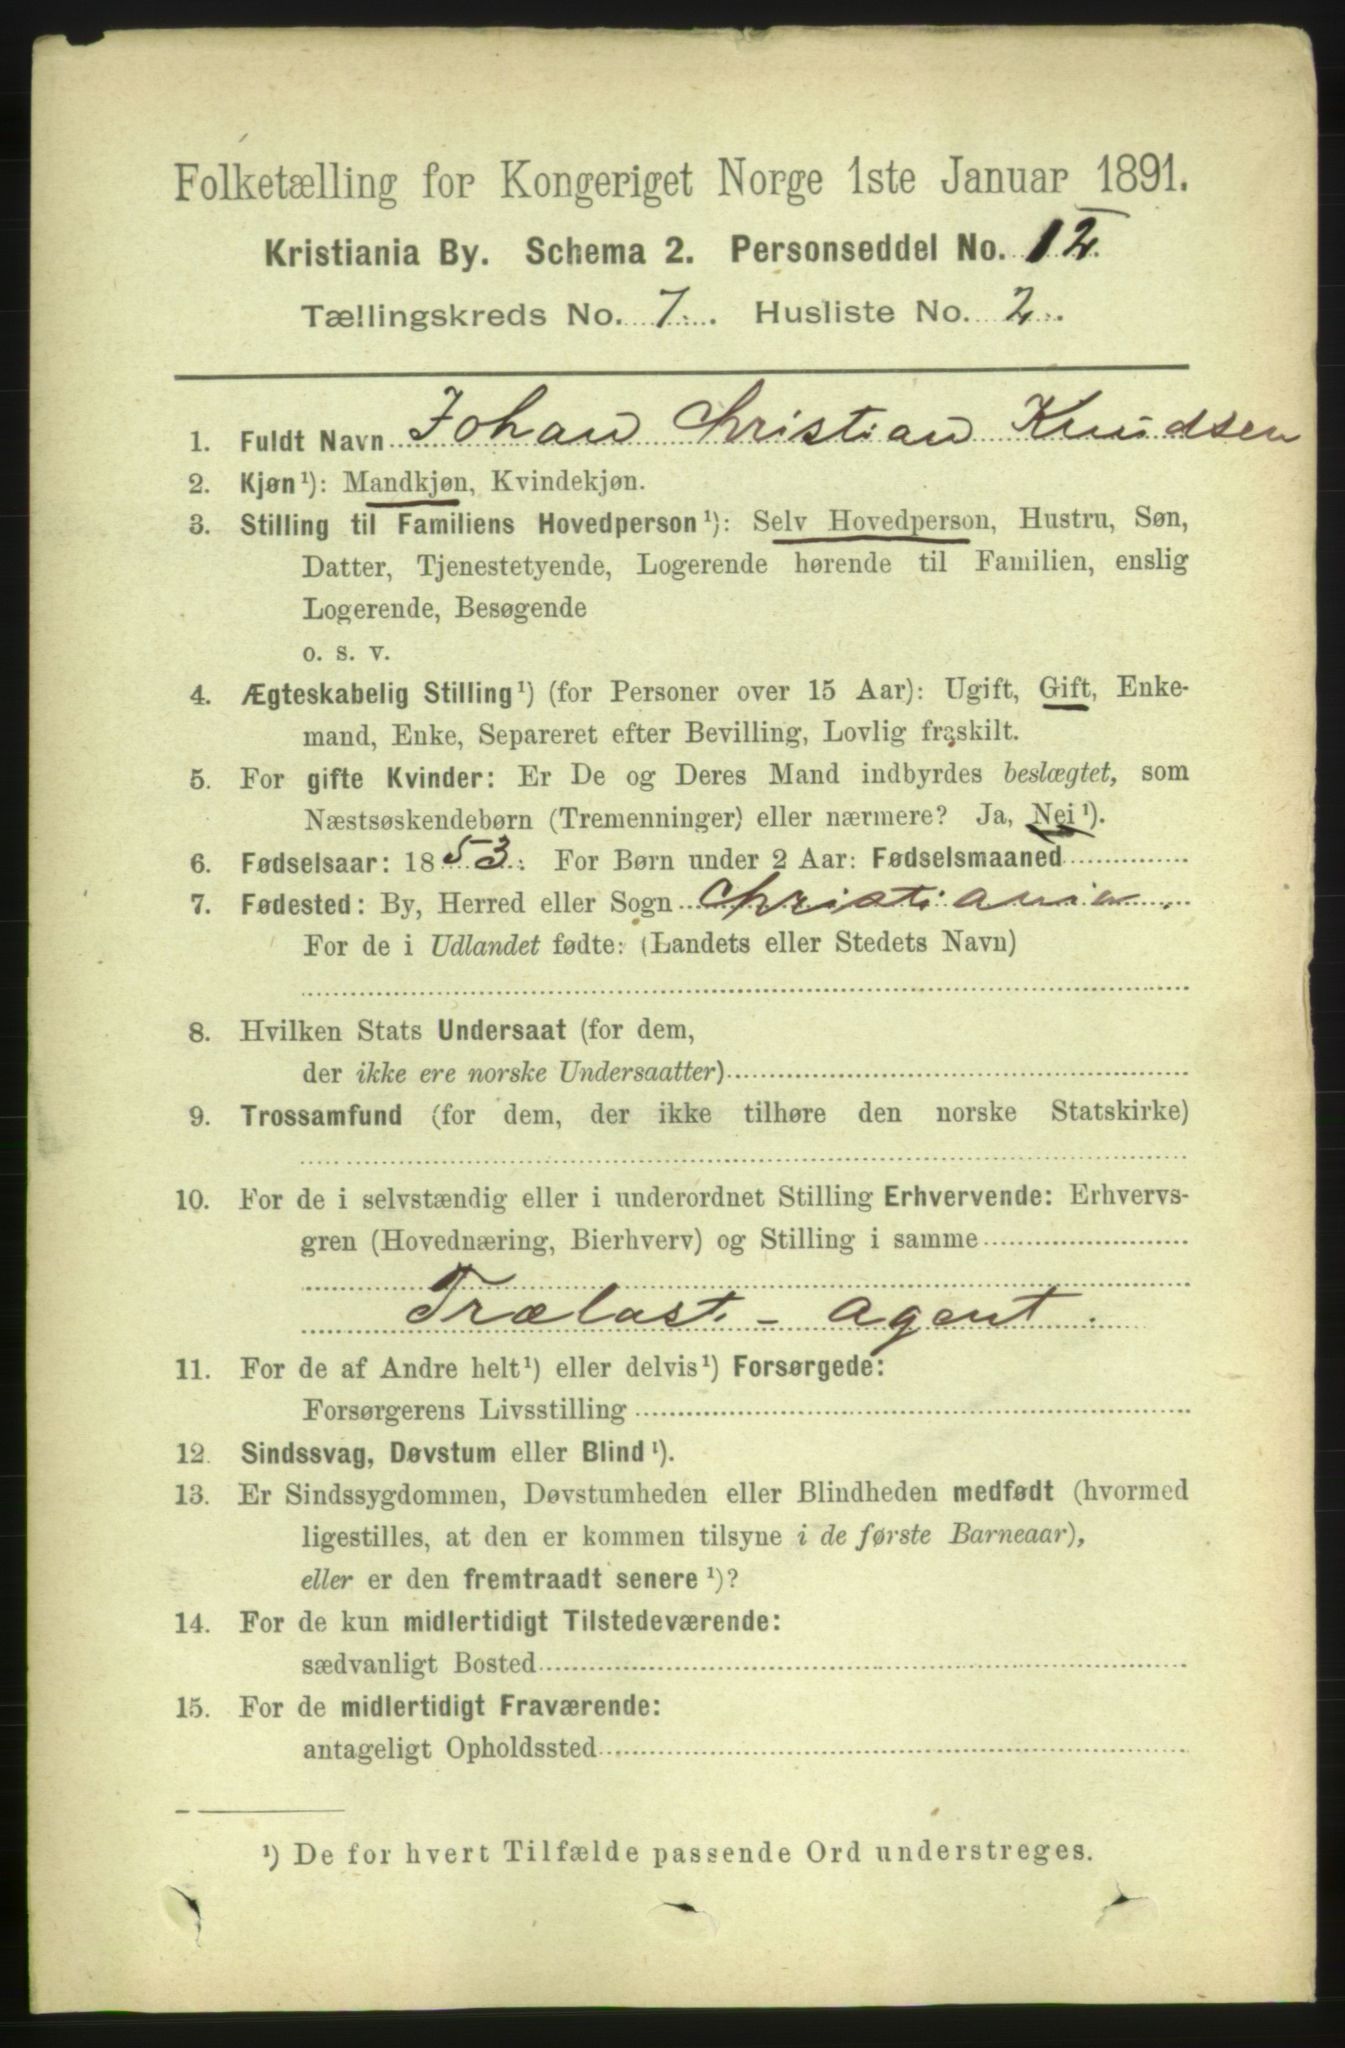 Folketælling for Kongeriget Norge 1ste Januar 1891.
Kristiania By. Schema 2. Personseddel No. 12.
Tællingskreds No. 7. Husliste No. 2.
1. Fuldt Navn Johan Christian Knudsen
2. Kjøn¹): Mandkjøn, Kvindekjøn.
3. Stilling til Familiens Hovedperson¹): Selv Hovedperson, Hustru, Søn,
Datter, Tjenestetyende, Logerende hørende til Familien, enslig
Logerende, Besøgende
o. s. v.
4. Ægteskabelig Stilling¹) (for Personer over 15 Aar): Ugift, Gift, Enke-
mand, Enke, Separeret efter Bevilling, Lovlig fraskilt.
5. For gifte Kvinder: Er De og Deres Mand indbyrdes beslægtet, som
Næstsøskendebørn (Tremenninger) eller nærmere? Ja, Nei¹).
6. Fødselsaar: 1853. For Børn under 2 Aar: Fødselsmaaned
7. Fødested: By, Herred eller Sogn Christiania.
For de i Udlandet fødte: (Landets eller Stedets Navn)
8. Hvilken Stats Undersaat (for dem,
der ikke ere norske Undersaatter)
9. Trossamfund (for dem, der ikke tilhøre den norske Statskirke)
10. For de i selvstændig eller i underordnet Stilling Erhvervende: Erhvervs-
gren (Hovednæring, Bierhverv) og Stilling i samme
Trælast - Agent.
11. For de af Andre helt¹) eller delvis¹) Forsørgede:
Forsørgerens Livsstilling
12. Sindssvag, Døvstum eller Blind¹).
13. Er Sindssygdommen, Døvstumheden eller Blindheden medfødt (hvormed
ligestilles, at den er kommen tilsyne i de første Barneaar),
eller er den fremtraadt senere¹)?
14. For de kun midlertidigt Tilstedeværende:
sædvanligt Bosted
15. For de midlertidigt Fraværende:
antageligt Opholdssted
¹) De for hvert Tilfælde passende Ord understreges.